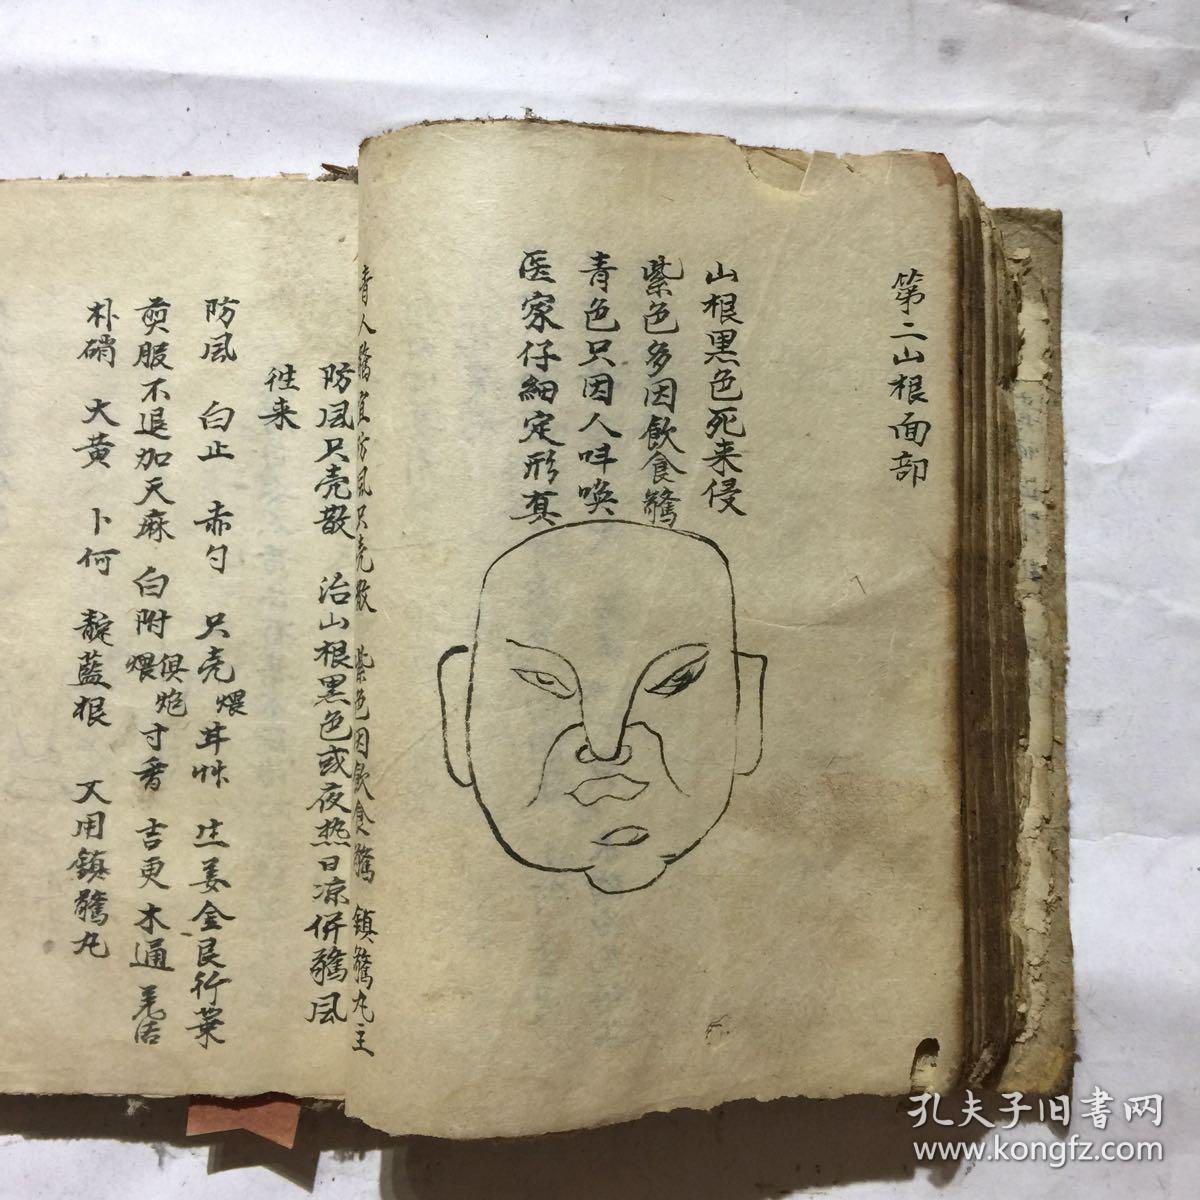 第二山根面部
山根黑色死来侵
紫色多因飲食驚
青色只因人呌唤
医家仔細定形真
青人驚宜防風只壳散 紫色因飲食驚 鎮驚丸主
防風只壳散 治山根黑色或夜热日凉併驚風
徃来
防風 白止 赤勺 只壳煨 生姜金艮竹葉
煎服不退加天麻 白附 俱炮煨 寸香 吉更 木通
朴硝 大黄 卜何 靛藍根 又用鎮驚丸
孔夫子旧書网
www.kongfz.com